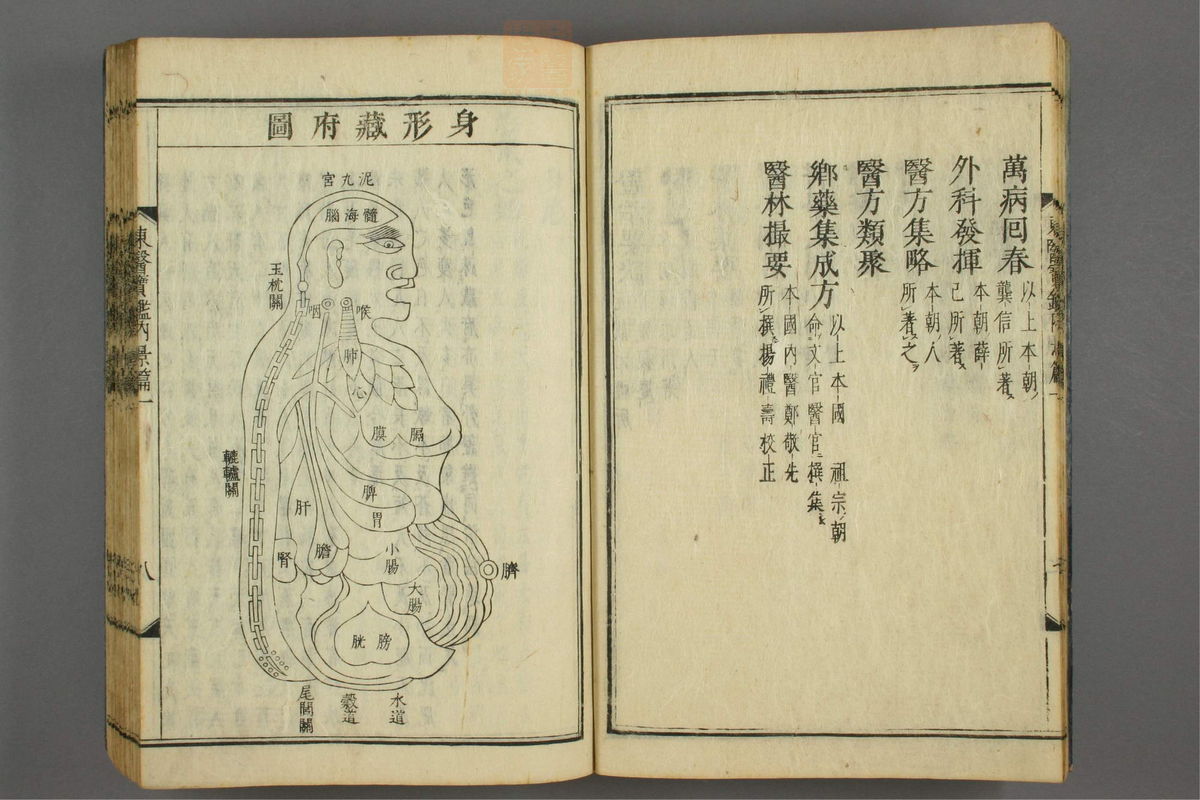 萬病回春
以上本朝
龔信所著
外科發揮
本朝薛
己所著
醫方集略
本朝人
所著之
醫方類聚
鄕藥集成方
以上本國　祖宗朝
命文官醫官撰集
醫林撮要
本國內醫鄭敬先
所撰楊禮壽校正
身形藏府圖
泥九宮
髓海腦
玉枕關
咽
喉
肺
心
膈膜
脾
胃
肝
轆轤關
腎
膽
小腸
大腸
臍
膀胱
尾閭關
穀道
水道
東醫寶鑑內景篇一
八